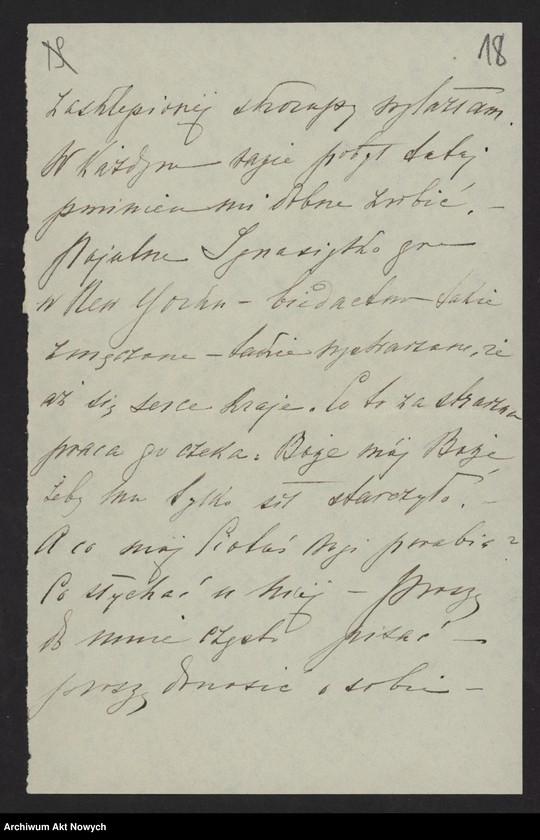 18
zasklepionej skorupy wylazłam.
W każdym razie pobyt tutaj
powinien mi dobrze zrobić. –
Pojutrze Ignasiątko gra
w New Yorku – biedactwo takie
zmęczone – takie wystraszone, że
aż się serce kraje. Co to za straszna
praca go czeka. Boże mój Boże
żeby mu tylko sił starczyło. –
A co mój Piotuś porabia?
Co słychać u niej – Proszę
do mnie często pisać –
proszę donosić o sobie –
Archiwum Akt Nowych